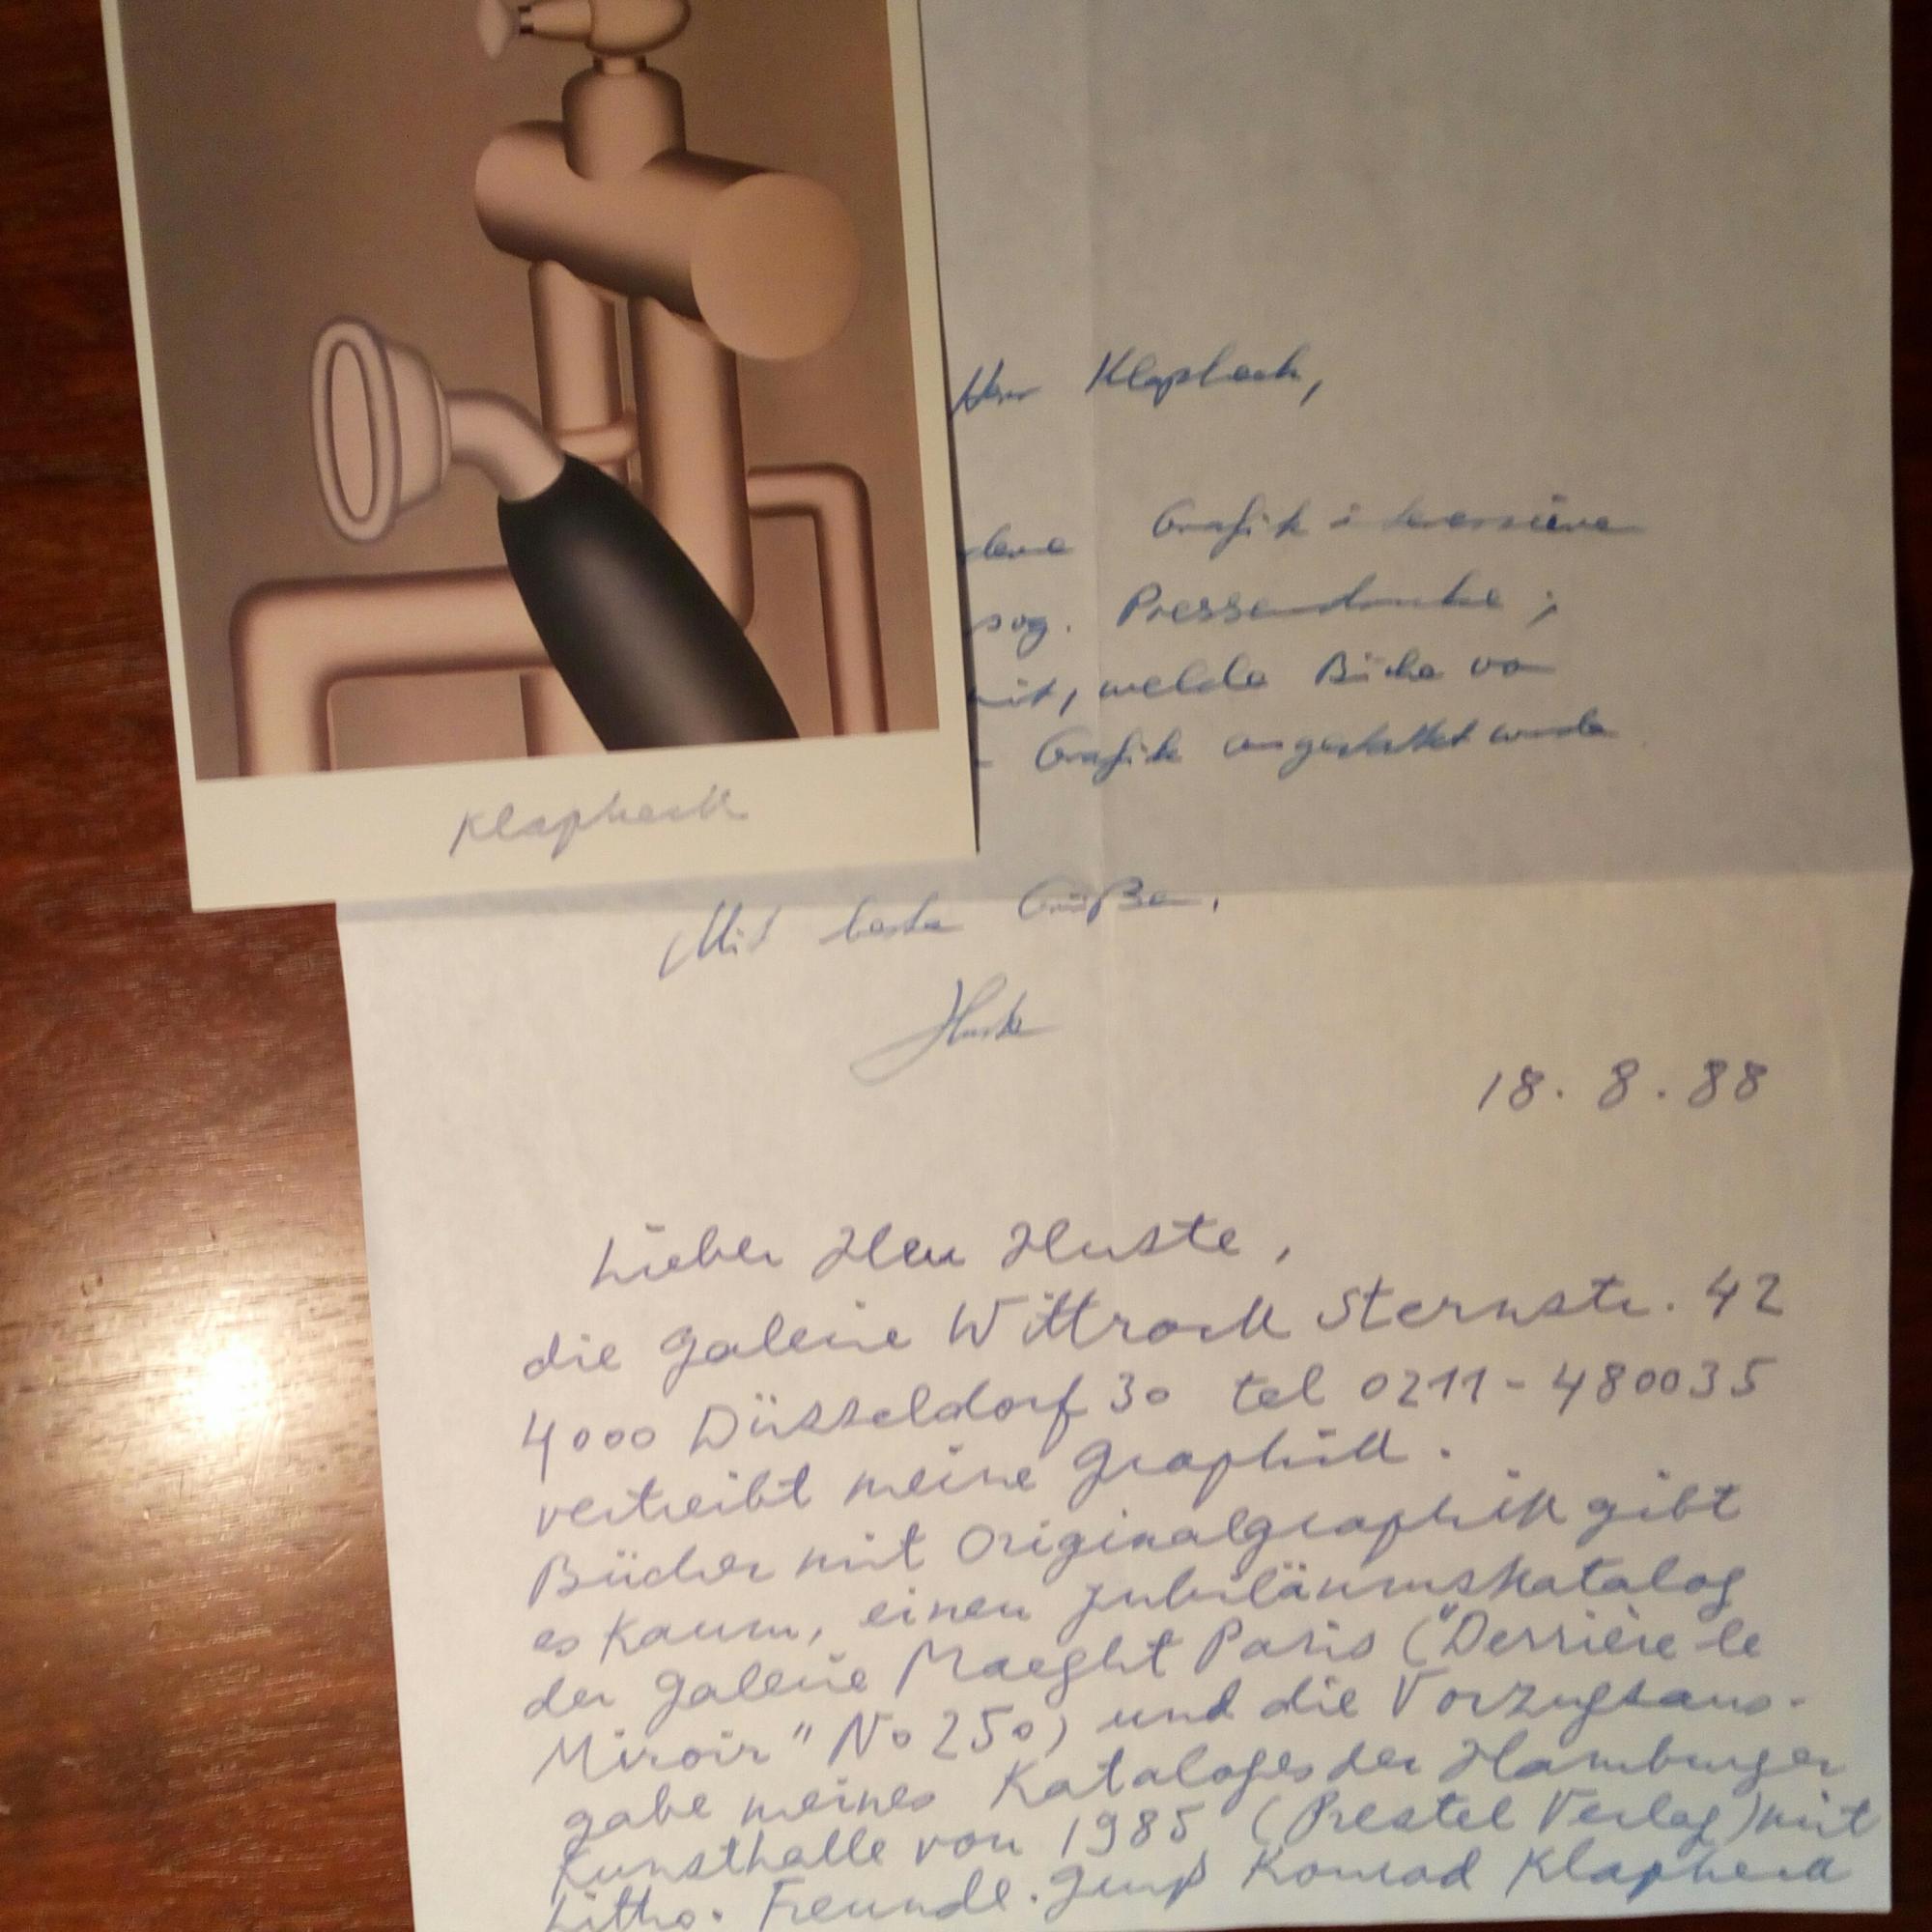 Herr Klapheck,
Grafik
sog. Pressendrucke ;
mit, welche Bücher von
Grafik ausgestattet wurden
Klapheck
Mit besten Grüßen,
Huste
18. 8. 88
Lieber Herr Huste,
die Galerie Wittrock Sternstr. 42
4000 Düsseldorf 30 tel 0211-480035
vertreibt meine Graphik.
Bücher mit Originalgraphik gibt
es kaum, einen Jubiläumskatalog
der Galerie Maeght Paris ("Derrière le
Miroir" No 250) und die Vorzugsaus-
gabe meines Kataloges der Hamburger
Kunsthalle von 1985 (Prestel Verlag) mit
Litho. Freundl. Gruß Konrad Klapheck